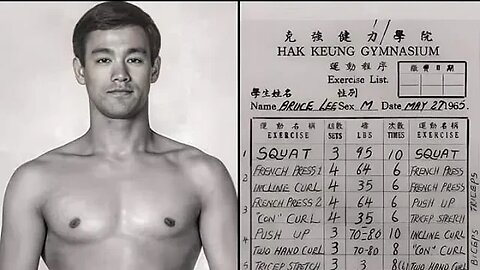 克強健力學院
HAK KEUNG GYMNASIUM
運動程序
Exercise List.
繳費日期
學生姓名 性別
Name BRUCE LEE Sex M Date MAY 27 1965.
運動名稱 組數 磅數 次數 運動名稱
EXERCISE SETS LBS TIMES EXERCISE
1 SQUAT 3 95 10 SQUAT
2 FRENCH PRESS 1 4 64 6 FRENCH PRESS
INCLINE CURL 4 35 6 FRENCH PRESS
3 FRENCH PRESS 2 4 64 6 PUSH UP
"CON" CURL 4 35 6 TRICEP STRETCH
4 PUSH UP 3 70-80 10 INCLINE CURL
TWO HAND CURL 3 70-80 8 "CON" CURL
5 TRICEP STRETCH 3 3
TRICEPS
BICEPS